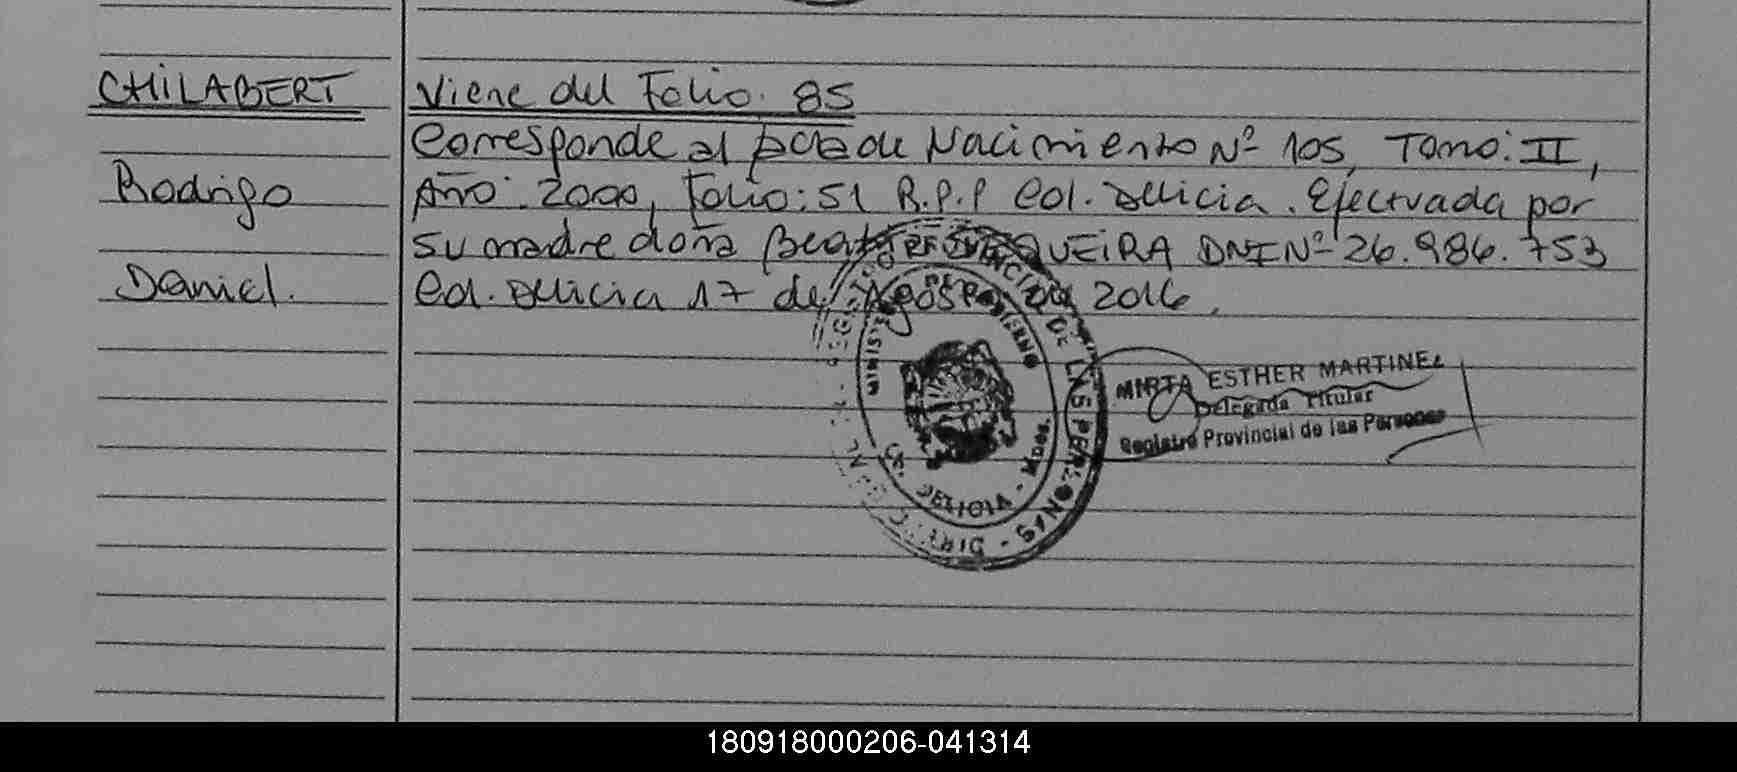 CHILABERT
Rodrigo
Daniel.
Viene del Folio. 85
Corresponde al acta de Nacimiento Nº 105, Tomo: II,
Año: 2000, Folio: 51 R.P.P Col. Delicia. Efectuada por
su madre doña Beatriz QUEIRA DNI Nº 26.986.753
Col. Delicia 17 de Agosto de 2016.
MIRTA ESTHER MARTINEZ
Delegada Titular
Registro Provincial de las Personas
DE LAS PERSONAS - DIRECC
MINISTE DE GOBIERNO
DELICIA - Mnes.
180918000206-041314